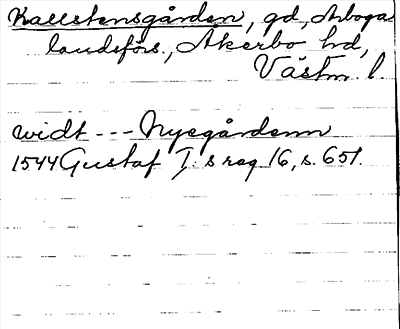 Kallstensgården, gd, Arboga
landsförs., Åkerbo hd,
Västm. l.
widt --- Nyegårdenn
1544 Gustaf I: s reg 16, s. 651.